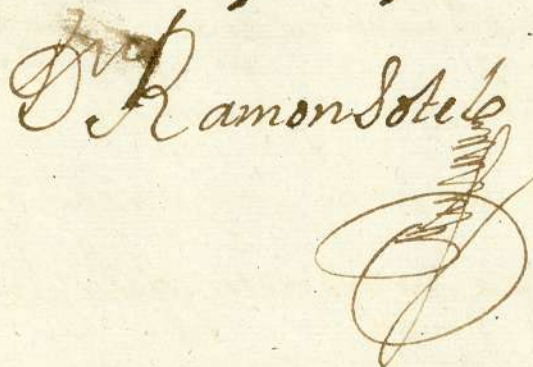 Dn Ramon Sotelo